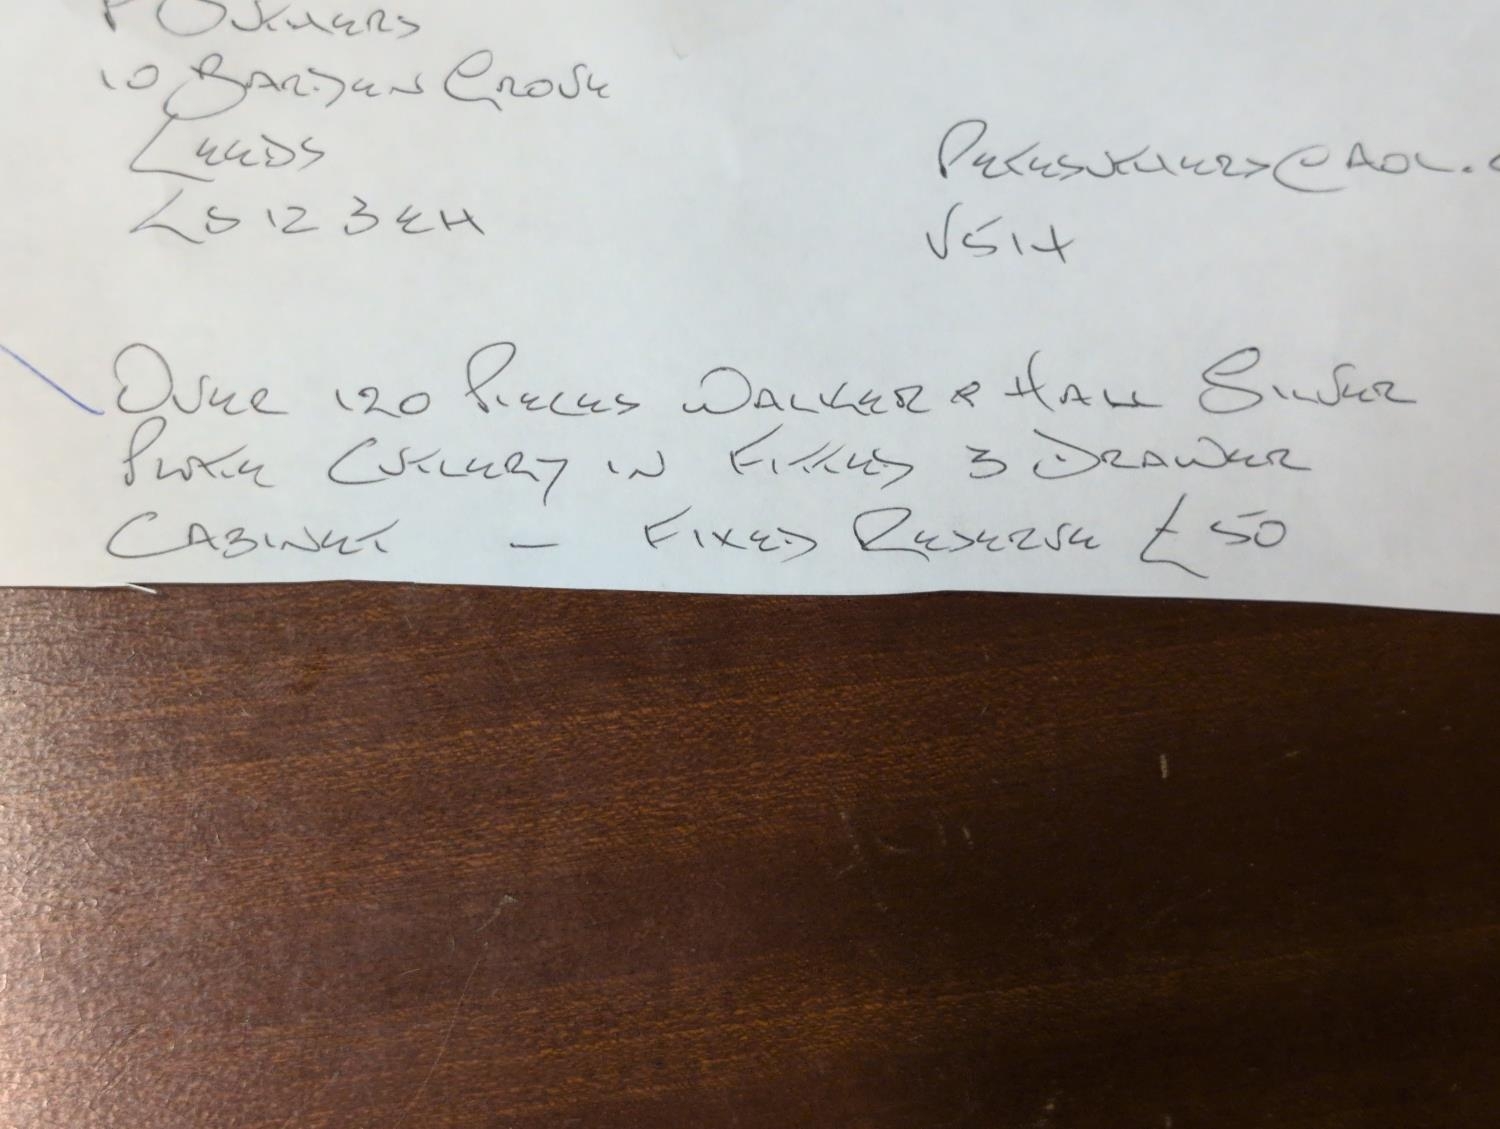 10 Barden Grove
Leeds
LS12 3EH
V514
Over 120 Pieces Walker & Hall Silver
Plate Cutlery in Fitted 3 Drawer
Cabinet – Fixed Reserve £50